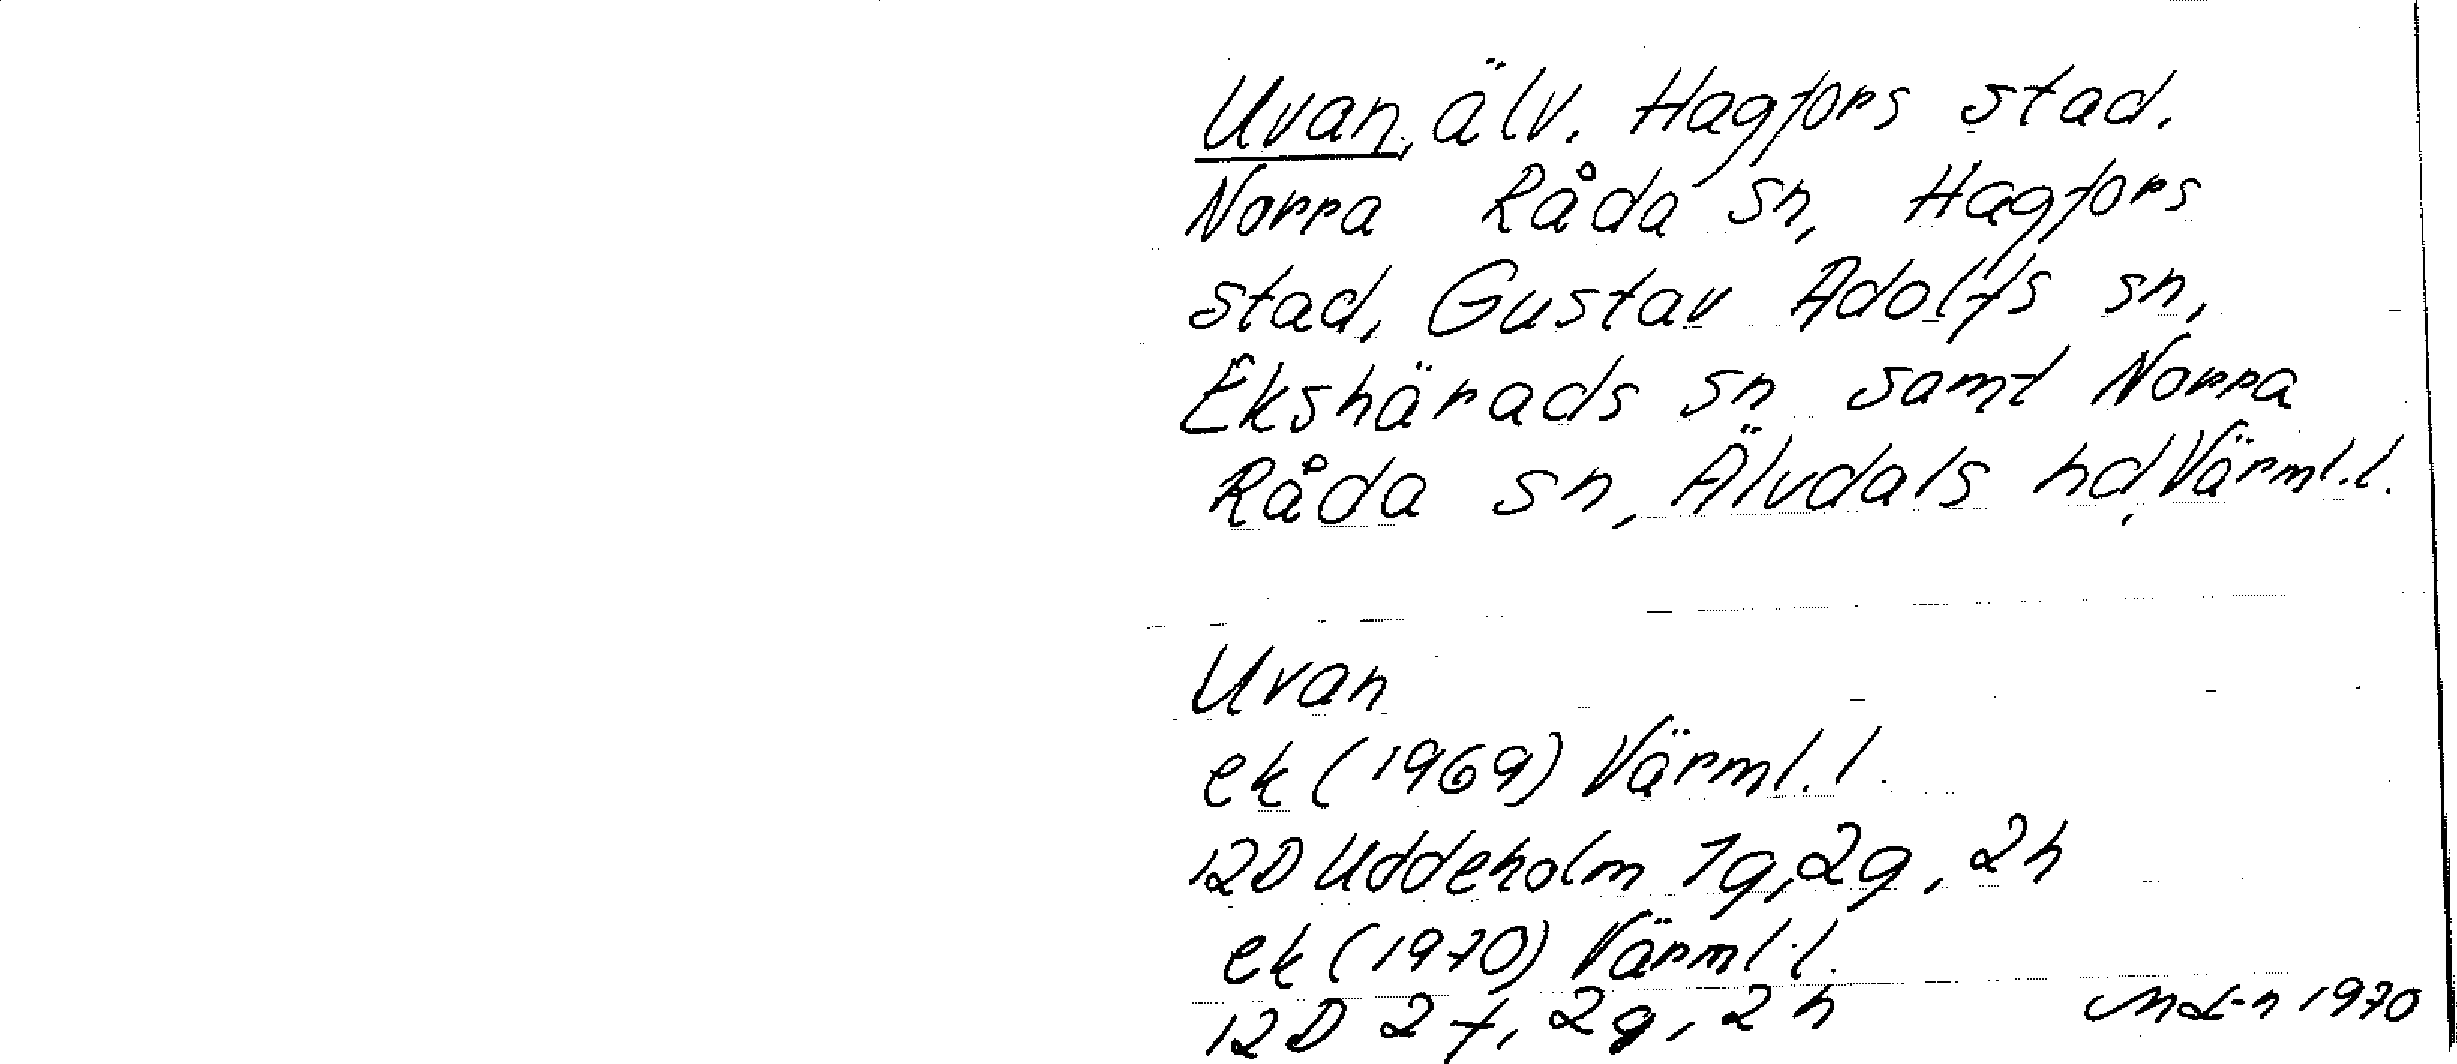 Uvan, älv. Hagfors stad.
Norra Råda sn, Hagfors
stad, Gustav Adolfs sn,
Ekshärads sn samt Norra
Råda sn, Älvdals hd, Värml.l.
Uvan
ek (1969) Värml.l.
12D Uddeholm 1g, 2g, 2h
ek (1970) Värml.l.
12D 2f, 2g, 2h
1970